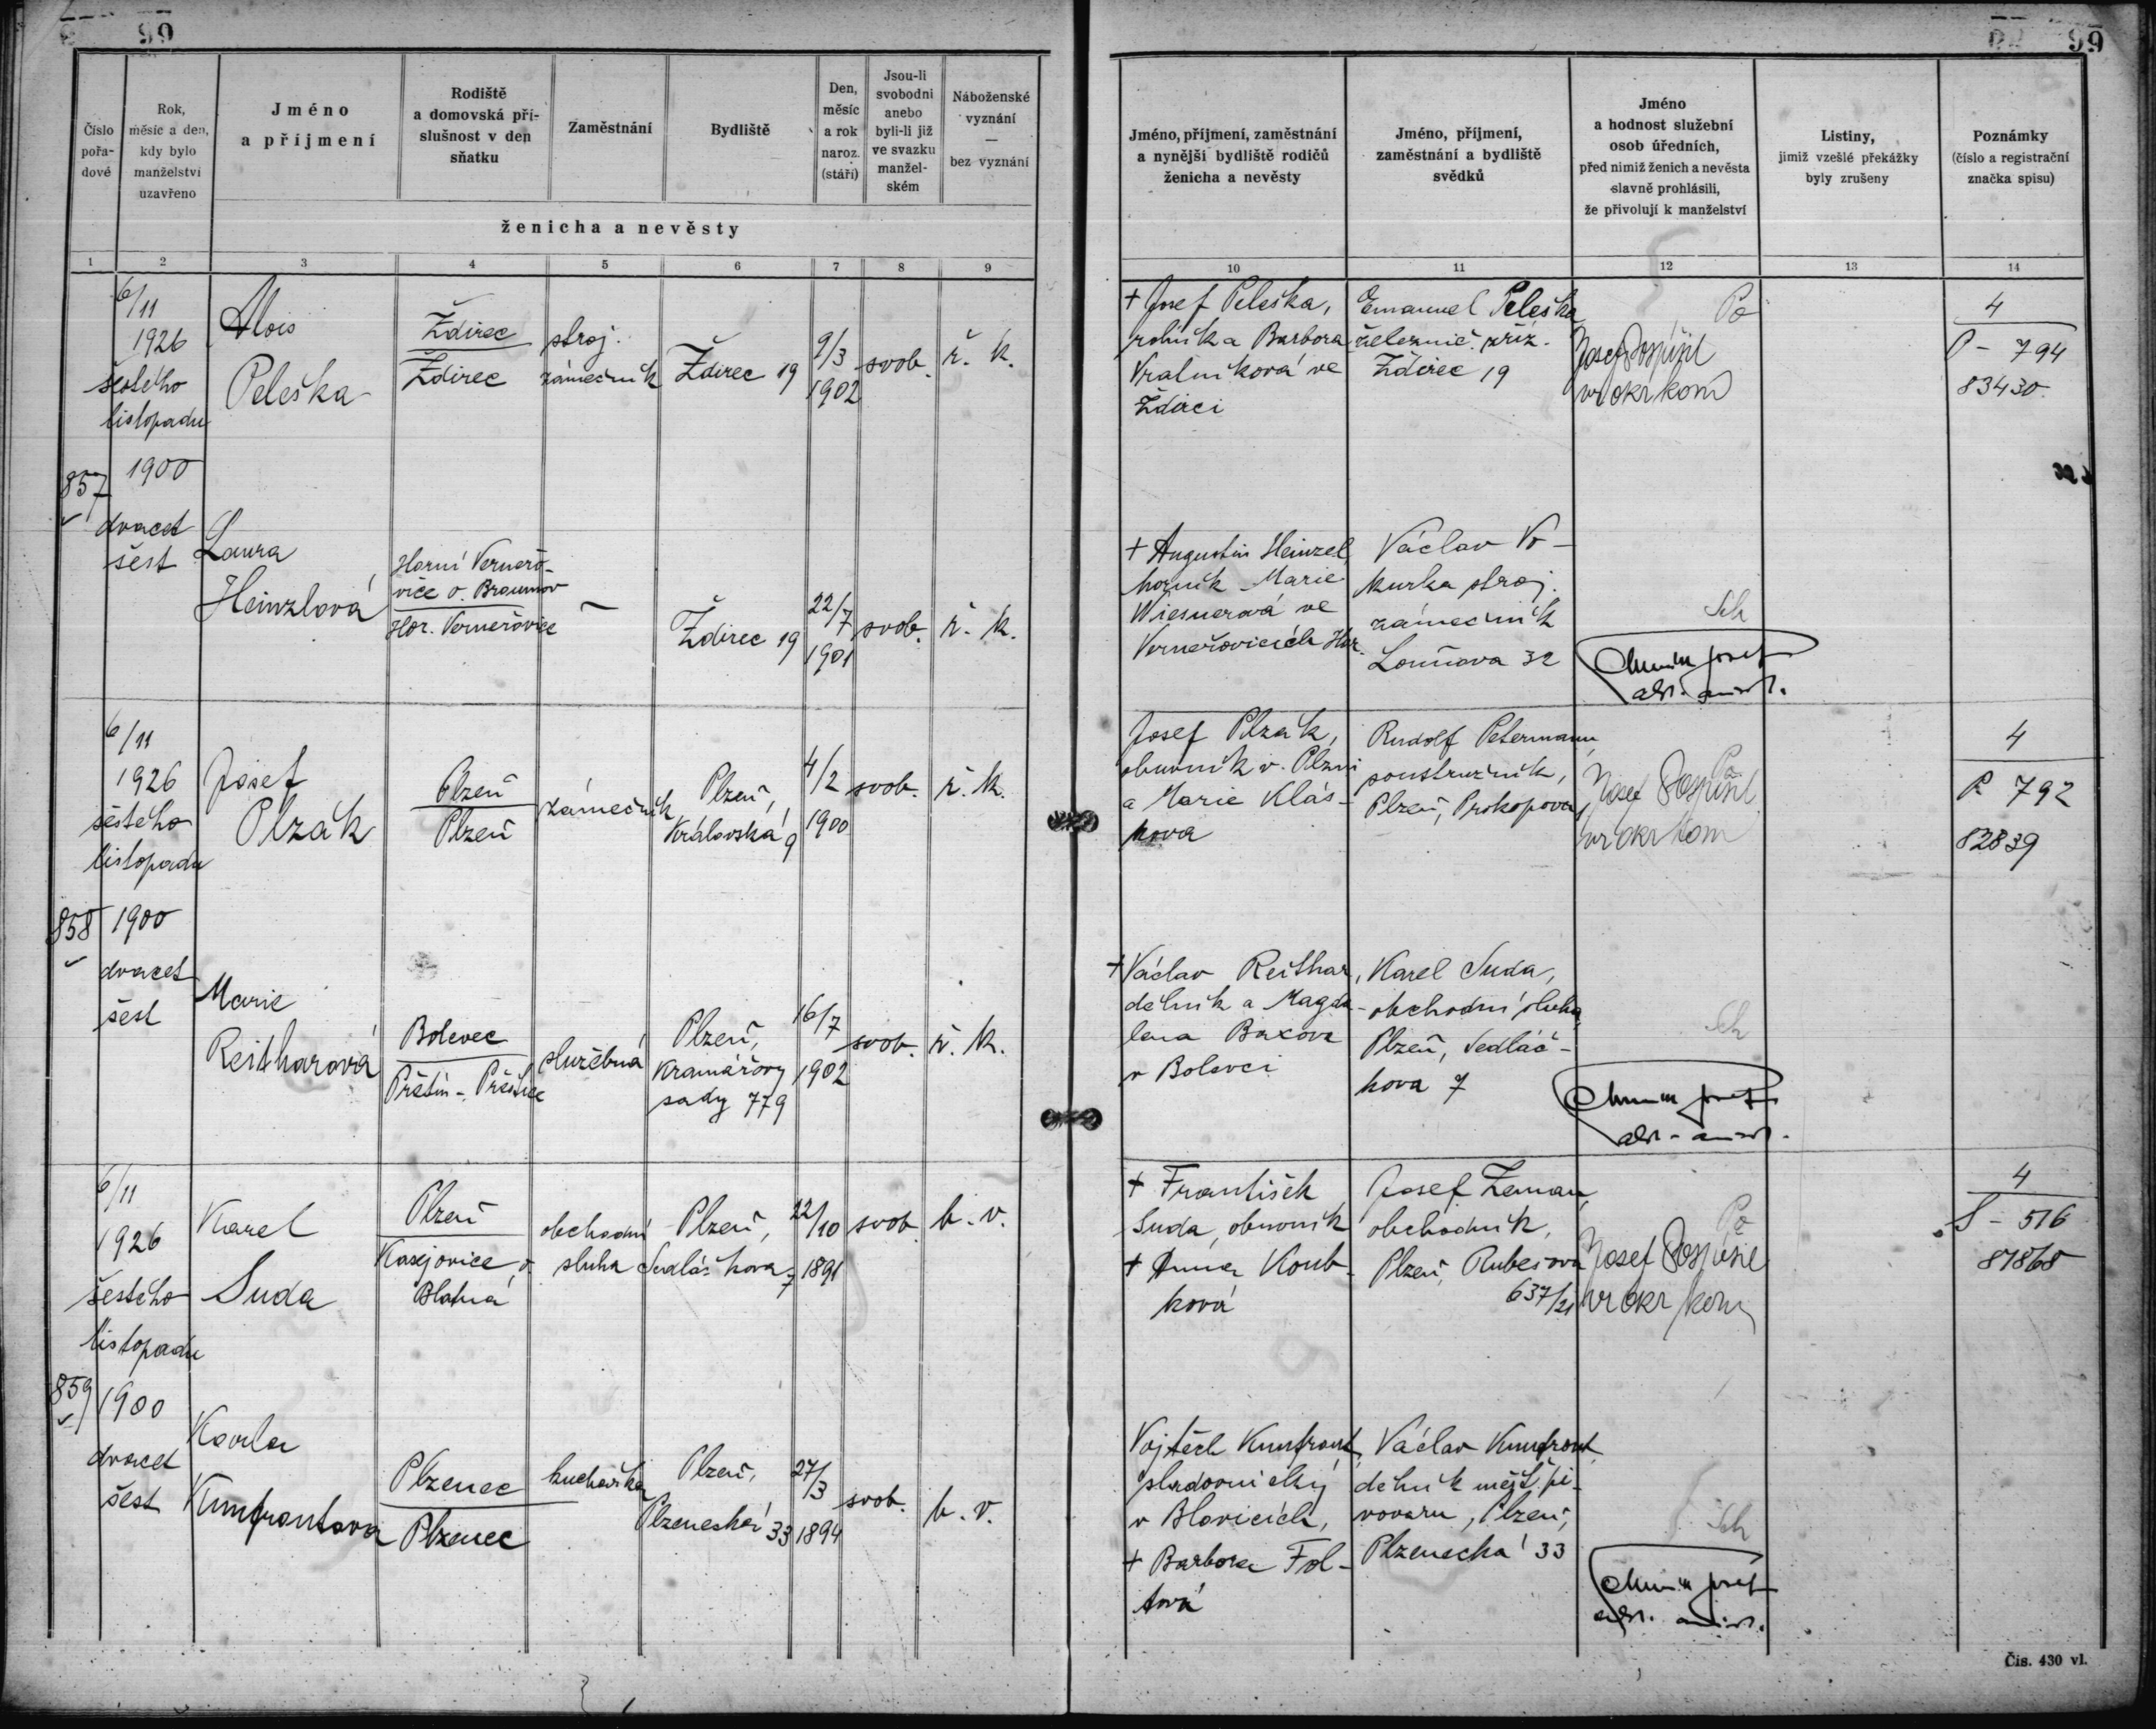 99
99
Číslo
pořa-
dové
Rok,
měsíc a den,
kdy bylo
manželství
uzavřeno
Jméno
a příjmení
Rodiště
a domovská pří-
slušnost v den
sňatku
Zaměstnání
Bydliště
Den,
měsíc
a rok
naroz.
(stáří)
Jsou-li
svobodni
anebo
byli-li již
ve svazku
manžel-
ském
Náboženské
vyznání
—
bez vyznání
ženicha a nevěsty
Jméno, příjmení, zaměstnání
a nynější bydliště rodičů
ženicha a nevěsty
Jméno, příjmení,
zaměstnání a bydliště
svědků
Jméno
a hodnost služební
osob úředních,
před nimiž ženich a nevěsta
slavně prohlásili,
že přivolují k manželství
Listiny,
jimiž vzešlé překážky
byly zrušeny
Poznámky
(číslo a registrační
značka spisu)
1 2 3 4 5 6 7 8 9
10 11 12 13 14
857
6/11
1926
šestého
listopadu
1900
dvacet
šest
Alois
Peleška
Ždirec
Ždirec
stroj.
zámečník
Ždirec 19
9/3
1902
svob.
ř. k.
+ Josef Peleška,
rolník a Barbora
Vratníková ve
Ždírci
Emanuel Peleška
železnič. zříz.
Ždirec 19
Po
Josef Pospíšil
vr okr kom
4
P - 794
83430
Laura
Heinzlová
Horní Verneřo-
vice o. Broumov
Hor. Verneřovice
—
Ždirec 19
22/7
1901
svob.
ř. k.
+ Augustin Heinzel,
horník Marie
Wiesnerová ve
Verneřovicích Hor.
Václav Vo-
kurka stroj.
zámečník
Louňova 32
Sch
858
6/11
1926
šestého
listopadu
1900
dvacet
šest
Josef
Plzák
Plzeň
Plzeň
zámečník
Plzeň,
Královská 9
4/2
1900
svob.
ř. k.
Josef Plzák,
obuvník v Plzni
a Marie Klás-
kova
Rudolf Petermann,
soustružník,
Plzeň, Prokopova
Po
Josef Pospíšil
vr okr kom
4
P 792
82839
Marie
Reitharová
Bolevec
Příštín - Přeštice
služebná
Plzeň,
Kramářovy
sady 779
16/7
1902
svob.
ř. k.
+ Václav Reithar,
dělník a Magda-
lena Baxova
v Bolevci
Karel Suda,
obchodní sluha,
Plzeň, Sedláč-
kova 7
Sch
859
6/11
1926
šestého
listopadu
1900
dvacet
šest
Karel
Suda
Plzeň
Kasejovice, o.
Blatná
obchodní
sluha
Plzeň,
Sedláčkova 7
22/10
1891
svob.
b. v.
+ František
Suda, obuvník
+ Anna Koub-
ková
Josef Zeman,
obchodník,
Plzeň, Rubešova
637/21
Po
Josef Pospíšil
vr okr kom
4
S - 516
81868
Karla
Kumfrontova
Plzenec
Plzenec
kuchařka
Plzeň,
Plzenecká 33
27/3
1894
svob.
b. v.
Vojtěch Kumfront,
sladovnický
v Blovicích,
+ Barbora Fol-
tová
Václav Kumfront
dělník měšť. pi-
vovaru, Plzeň,
Plzenecká 33
Sch
Čís. 430 vl.